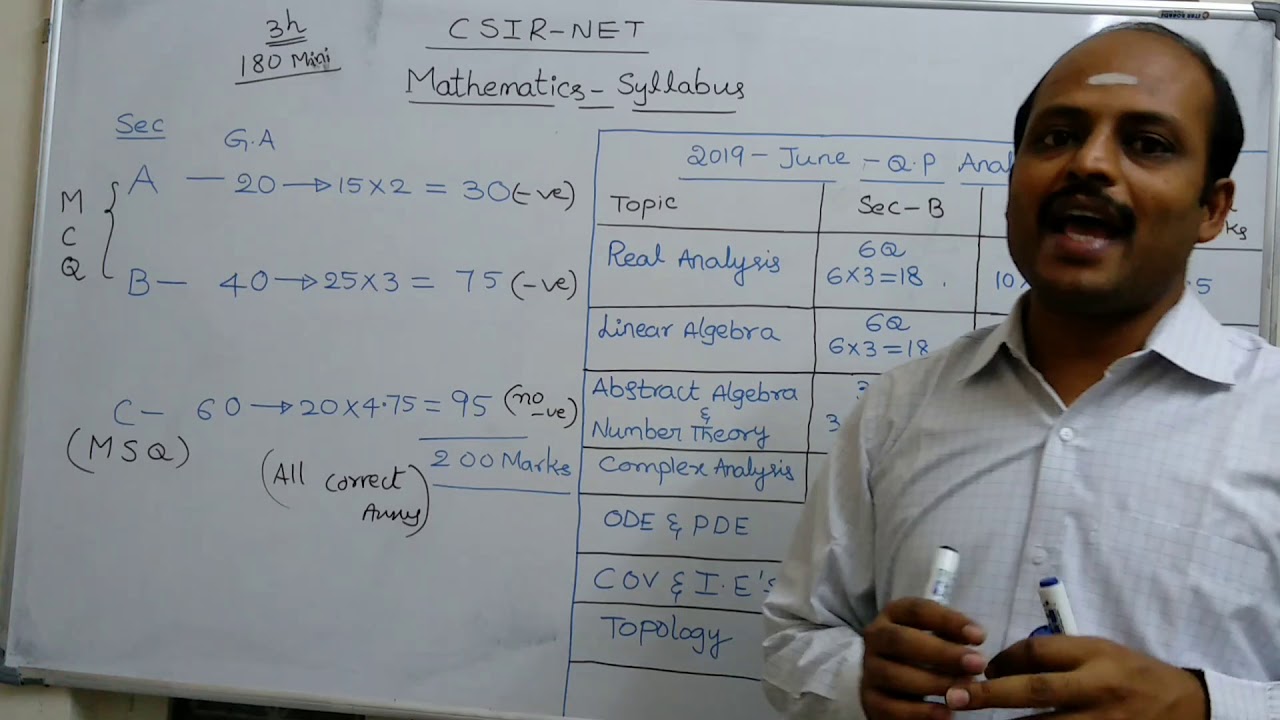 3h
180 Mini
CSIR-NET
Mathematics - Syllabus
Sec G.A
MCQ
A — 20 → 15×2 = 30 (-ve)
B — 40 → 25×3 = 75 (-ve)
C — 60 → 20×4.75 = 95 (no -ve)
(MSQ)
200 Marks
(All correct
2019 - June - Q.P Anal
Topic Sec-B ks
Real Analysis 6Q
6×3=18 10× .5
Linear Algebra 6Q
6×3=18
Abstract Algebra 3
&
Number Theory 3
Complex Analysis
ODE & PDE
COV & I.E's
Topology